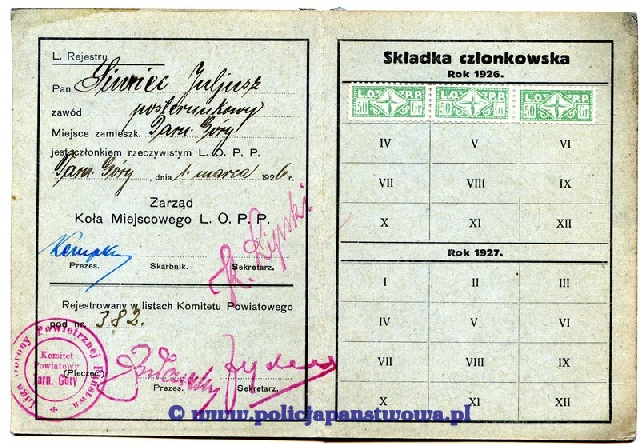 L. Rejestru
Pan Siwiec Juljusz
zawód posterunkowy
Miejsce zamieszk. Tarn. Góry
jest członkiem rzeczywistym L. O. P. P.
Tarn. Góry, dnia 1 marca 1926 r.
Zarząd
Koła Miejscowego L. O. P. P.
Prezes. Skarbnik. Sekretarz.
Rejestrowany w listach Komitetu Powiatowego
pod nr. 382.
(Pieczęć)
Prezes. Sekretarz.
Komitet
Powiatowy
Tarn. Góry
Składka członkowska
Rok 1926.
L.O.P.P. L.O.P.P. L.O.P.P.
50 GR 50 GR 50 GR
IV V VI
VII VIII IX
X XI XII
Rok 1927.
I II III
IV V VI
VII VIII IX
X XI XII
© www.policjapanstwowa.pl